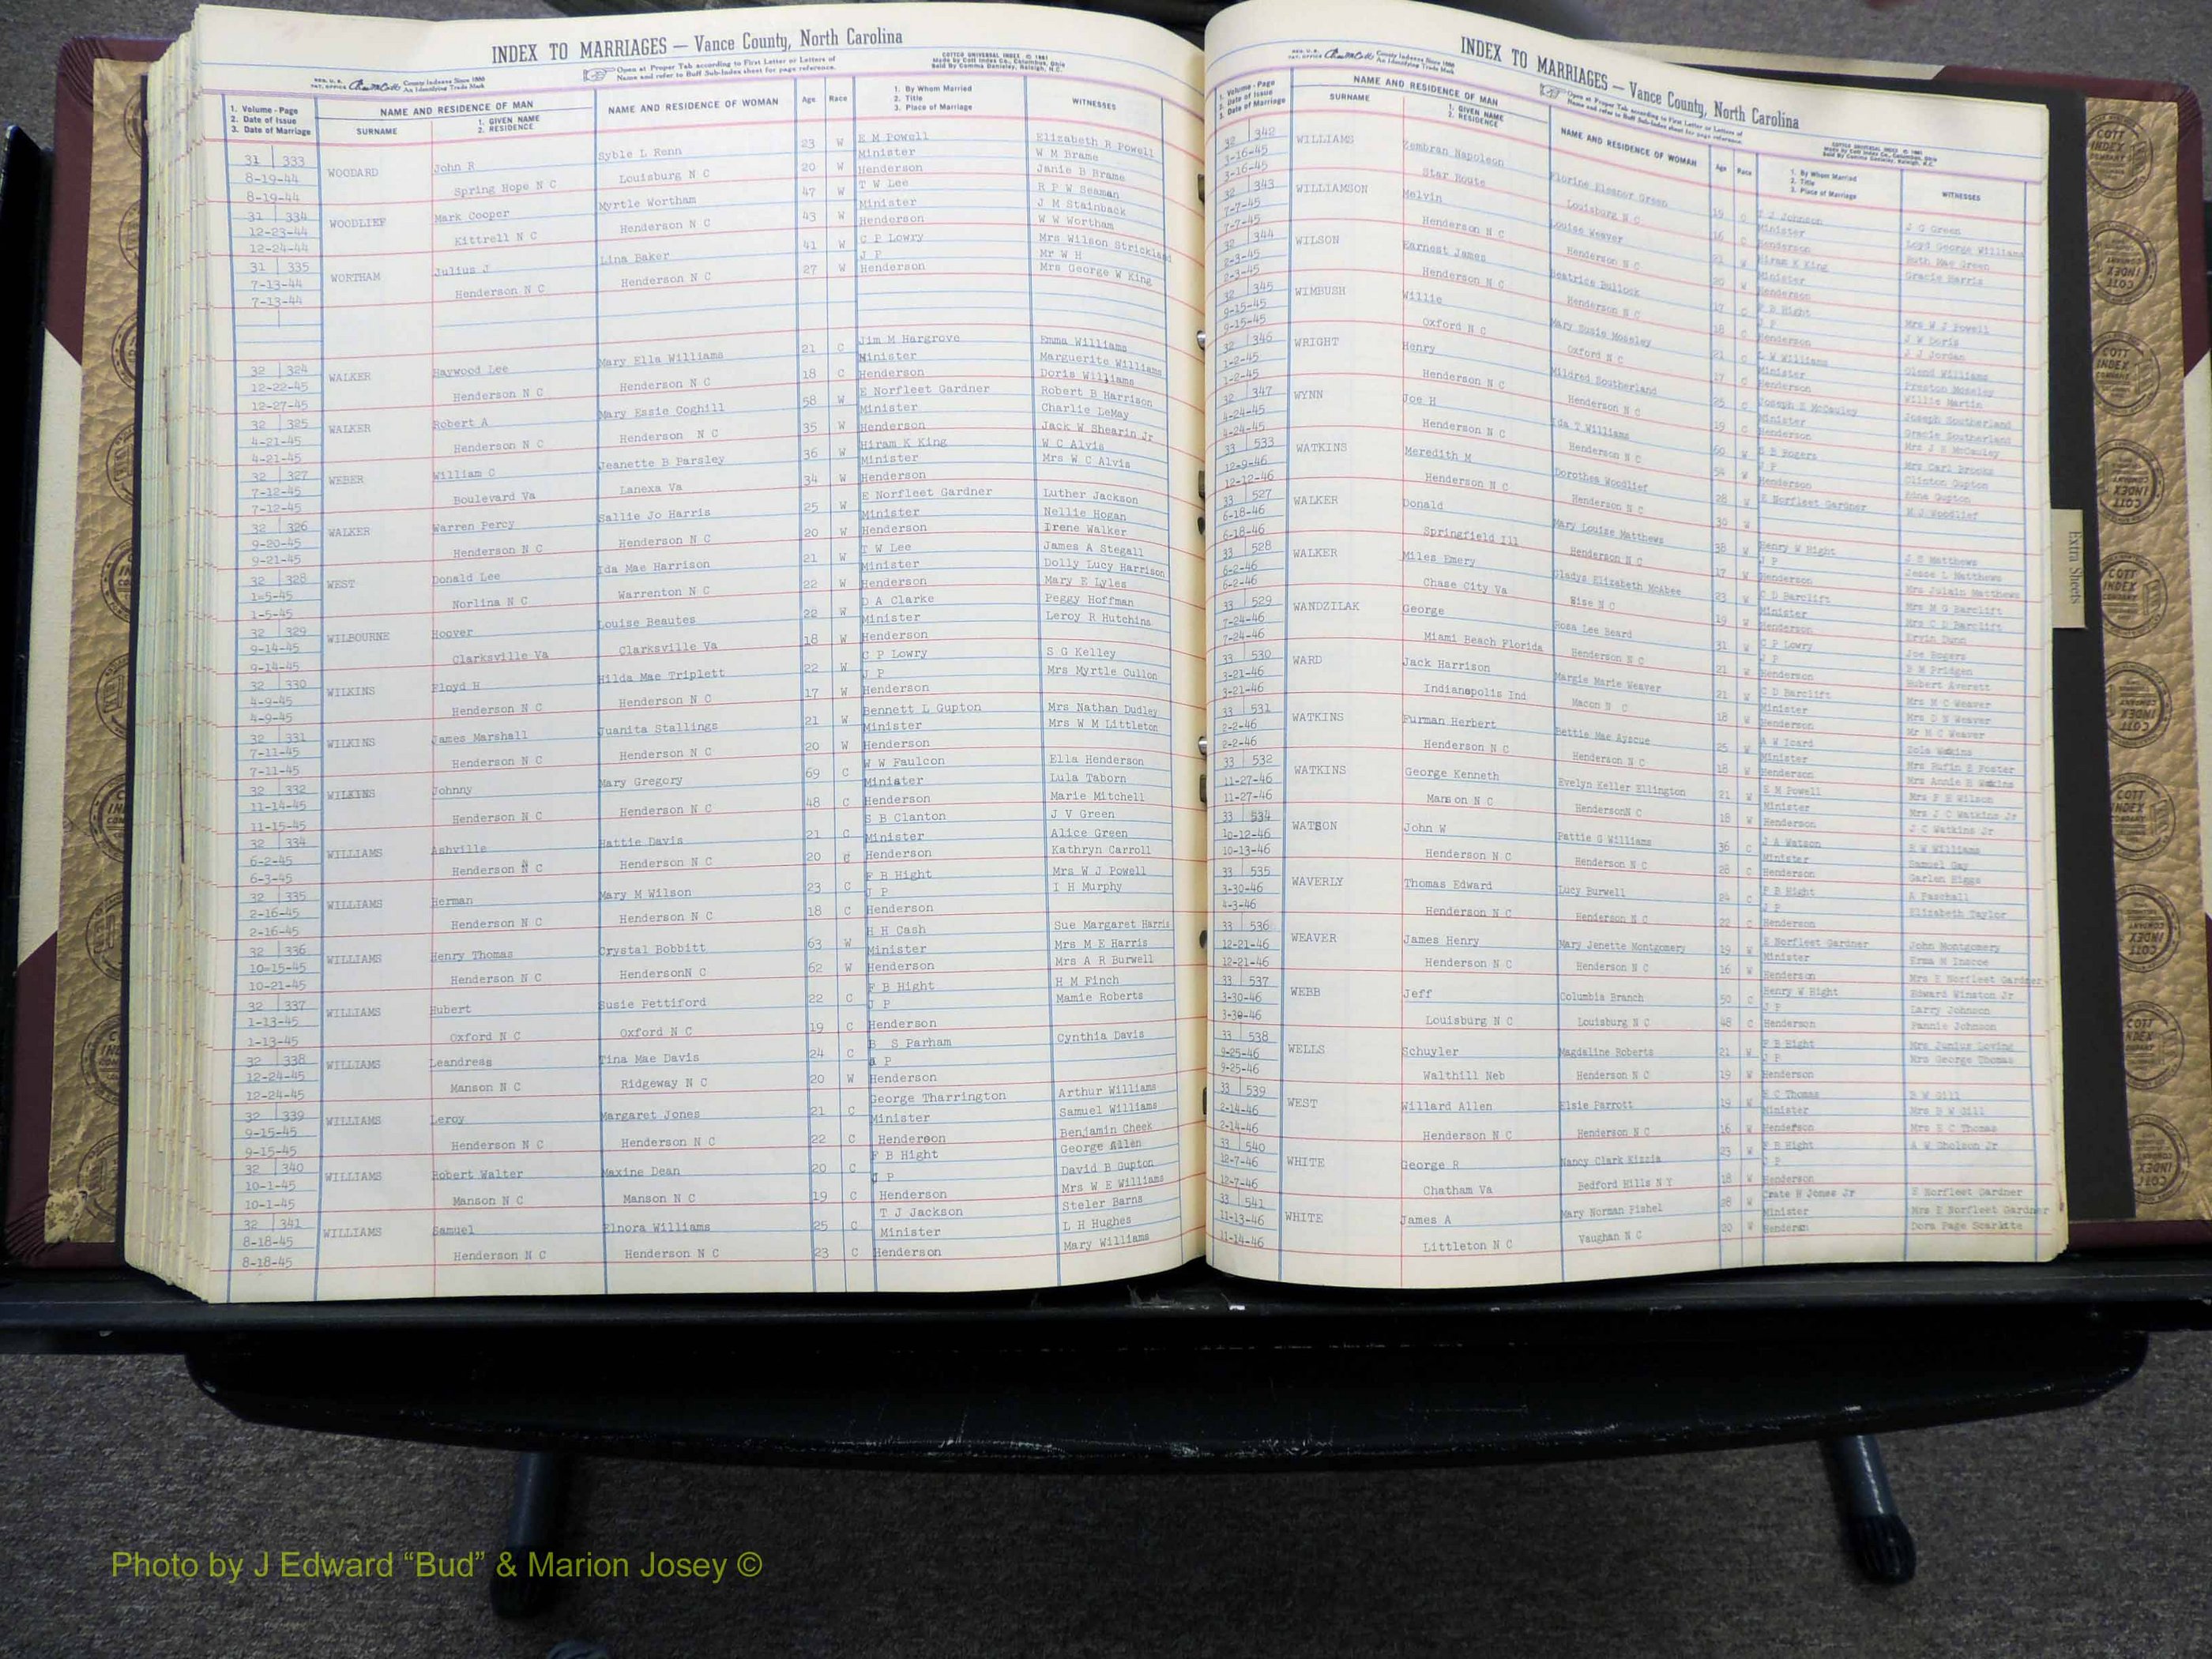 INDEX TO MARRIAGES — Vance County, North Carolina
Open at Proper Tab according to First Letter or Letters of
Name and refer to Buff Sub-Index sheet for page reference.
COTTCO UNIVERSAL INDEX © 1961
Made by Cott Index Co., Columbus, Ohio
County Indexes Since 1888
An Identifying Trade Mark
1. Volume - Page
2. Date of Issue
3. Date of Marriage
NAME AND RESIDENCE OF MAN
SURNAME
1. GIVEN NAME
2. RESIDENCE
NAME AND RESIDENCE OF WOMAN
Age Race
1. By Whom Married
2. Title
3. Place of Marriage
WITNESSES
31 333 WOODARD John R Syble L Renn 23 W E M Powell Elizabeth R Powell
8-19-44 Spring Hope N C Louisburg N C 20 W Minister W M Brame
8-19-44 Henderson Janie B Brame
31 334 WOODLIEF Mark Cooper Myrtle Wortham 47 W T W Lee R P W Seaman
12-23-44 Kittrell N C Henderson N C 43 W Minister J M Stainback
12-24-44 Henderson W W Wortham
31 335 WORTHAM Julius J Lina Baker 41 W C P Lowry Mrs Wilson Strickland
7-13-44 Henderson N C Henderson N C 27 W J P Mr W H
7-13-44 Henderson Mrs George W King
32 324 WALKER Haywood Lee Mary Ella Williams 21 C Jim M Hargrove Emma Williams
12-22-45 Henderson N C Henderson N C 18 C Minister Marguerite Williams
12-27-45 Henderson Doris Williams
32 325 WALKER Robert A Mary Essie Coghill 58 W E Norfleet Gardner Robert B Harrison
4-21-45 Henderson N C Henderson N C 35 W Minister Charlie LeMay
4-21-45 Henderson Jack W Shearin Jr
32 327 WEBER William C Jeanette B Parsley 36 W Hiram K King W C Alvis
7-12-45 Boulevard Va Lanexa Va 34 W Minister Mrs W C Alvis
7-12-45 Henderson
32 326 WALKER Warren Percy Sallie Jo Harris 25 W E Norfleet Gardner Luther Jackson
9-20-45 Henderson N C Henderson N C 20 W Minister Nellie Hogan
9-21-45 Henderson Irene Walker
32 328 WEST Donald Lee Ida Mae Harrison 21 W T W Lee James A Stegall
1-5-45 Norlina N C Warrenton N C 22 W Minister Dolly Lucy Harrison
1-5-45 Henderson Mary E Lyles
32 329 WILBOURNE Hoover Louise Beautes 22 W D A Clarke Peggy Hoffman
9-14-45 Clarksville Va Clarksville Va 18 W Minister Leroy R Hutchins
9-14-45 Henderson
32 330 WILKINS Floyd H Hilda Mae Triplett 22 W C P Lowry S G Kelley
4-9-45 Henderson N C Henderson N C 17 W J P Mrs Myrtle Cullon
4-9-45 Henderson
32 331 WILKINS James Marshall Juanita Stallings 21 W Bennett L Gupton Mrs Nathan Dudley
7-11-45 Henderson N C Henderson N C 20 W Minister Mrs W M Littleton
7-11-45 Henderson
32 332 WILKINS Johnny Mary Gregory 69 C W W Faulcon Ella Henderson
11-14-45 Henderson N C Henderson N C 48 C Minister Lula Taborn
11-15-45 Henderson Marie Mitchell
32 334 WILLIAMS Ashville Hattie Davis 21 C S B Clanton J V Green
6-2-45 Henderson N C Henderson N C 20 C Minister Alice Green
6-3-45 Henderson Kathryn Carroll
32 335 WILLIAMS Herman Mary M Wilson 23 C F B Hight Mrs W J Powell
2-16-45 Henderson N C Henderson N C 18 C J P I H Murphy
2-16-45 Henderson
32 336 WILLIAMS Henry Thomas Crystal Bobbitt 63 W H H Cash Sue Margaret Harris
10-15-45 Henderson N C HendersonN C 62 W Minister Mrs M E Harris
10-21-45 Henderson Mrs A R Burwell
32 337 WILLIAMS Hubert Susie Pettiford 22 C F B Hight H M Finch
1-13-45 Oxford N C Oxford N C 19 C J P Mamie Roberts
1-13-45 Henderson
32 338 WILLIAMS Leandress Tina Mae Davis 24 C B S Parham Cynthia Davis
12-24-45 Manson N C Ridgeway N C 20 W J P
12-24-45 Henderson
32 339 WILLIAMS Leroy Margaret Jones 21 C George Tharrington Arthur Williams
9-15-45 Henderson N C Henderson N C 22 C Minister Samuel Williams
9-15-45 Henderson Benjamin Cheek
32 340 WILLIAMS Robert Walter Maxine Dean 20 C F B Hight George Allen
10-1-45 Manson N C Manson N C 19 C J P David B Gupton
10-1-45 Henderson Mrs W E Williams
32 341 WILLIAMS Samuel Elnora Williams 25 C T J Jackson Steler Barns
8-18-45 Henderson N C Henderson N C 23 C Minister L H Hughes
8-18-45 Henderson Mary Williams
INDEX TO MARRIAGES — Vance County, North Carolina
Open at Proper Tab according to First Letter or Letters of
Name and refer to Buff Sub-Index sheet for page reference.
1. Volume - Page
2. Date of Issue
3. Date of Marriage
NAME AND RESIDENCE OF MAN
SURNAME
1. GIVEN NAME
2. RESIDENCE
NAME AND RESIDENCE OF WOMAN
Age Race
1. By Whom Married
2. Title
3. Place of Marriage
WITNESSES
32 342 WILLIAMS Zembran Napoleon Florine Eleanor Green 19 C T J Johnson J G Green
3-16-45 Star Route Louisburg N C 16 C Minister Loyd George Williams
3-16-45 Henderson Ruth Mae Green
32 343 WILLIAMSON Melvin Louise Weaver 21 W Hiram K King Gracie Harris
7-7-45 Henderson N C Henderson N C 20 W Minister
7-7-45 Henderson
32 344 WILSON Earnest James Beatrice Bullock 17 C F B Hight Mrs W J Powell
2-3-45 Henderson N C Henderson N C 18 C J P J W Doris
2-3-45 Henderson J J Jordan
32 345 WIMBUSH Willie Mary Susie Moseley 21 C L W Williams Olend Williams
9-15-45 Oxford N C Oxford N C 17 C Minister Preston Moseley
9-15-45 Henderson Willie Martin
32 346 WRIGHT Henry Mildred Southerland 25 C Joseph E McCauley Joseph Southerland
1-2-45 Henderson N C Henderson N C 19 C Minister Gracie Southerland
1-2-45 Henderson Mrs J E McCauley
32 347 WYNN Joe H Ida T Williams 60 W B B Rogers Mrs Carl Brooks
4-24-45 Henderson N C Henderson N C 54 W J P Clinton Gupton
4-24-45 Henderson Edna Gupton
33 533 WATKINS Meredith M Dorothea Woodlief 28 W E Norfleet Gardner M J Woodlief
12-9-46 Henderson N C Henderson N C 30 W
12-12-46
33 527 WALKER Donald Mary Louize Matthews 38 W Henry W Hight J S Matthews
6-18-46 Springfield Ill Henderson N C 17 W J P Jesse L Matthews
6-18-46 Henderson Mrs Julain Matthews
33 528 WALKER Miles Emery Gladys Elizabeth McAbee 23 W C D Barclift Mrs M G Barclift
6-2-46 Chase City Va Wise N C 19 W Minister Mrs C D Barclift
6-2-46 Henderson Ervin Dunn
33 529 WANDZILAK George Rosa Lee Beard 31 W C P Lowry Joe Rogers
7-24-46 Miami Beach Florida Henderson N C 21 W J P B M Pridgen
7-24-46 Henderson Hubert Averett
33 530 WARD Jack Harrison Margie Marie Weaver 21 W C D Barclift Mrs M C Weaver
3-21-46 Indianapolis Ind Macon N C 18 W Minister Mrs D N Weaver
3-21-46 Henderson Mr M C Weaver
33 531 WATKINS Furman Herbert Bettie Mae Ayscue 25 W A W Icard Zola Watkins
2-2-46 Henderson N C Henderson N C 18 W Minister Mrs Rufin E Foster
2-2-46 Henderson Mrs Annie H Watkins
33 532 WATKINS George Kenneth Evelyn Keller Ellington 21 W E M Powell Mrs F H Wilson
11-27-46 Manson N C HendersonN C 18 W Minister Mrs J C Watkins Jr
11-27-46 Henderson J C Watkins Jr
33 534 WATSON John W Pattie G Williams 36 C J A Watson R W Williams
10-12-46 Henderson N C Henderson N C 28 C Minister Samuel Gay
10-13-46 Henderson Garlen Higgs
33 535 WAVERLY Thomas Edward Lucy Burwell 24 C F B Hight A Paschall
3-30-46 Henderson N C Henderson N C 22 C J P Elizabeth Taylor
4-3-46 Henderson
33 536 WEAVER James Henry Mary Jenette Montgomery 19 W E Norfleet Gardner John Montgomery
12-21-46 Henderson N C Henderson N C 16 W Minister Erma M Inscoe
12-21-46 Henderson Mrs E Norfleet Gardner
33 537 WEBB Jeff Columbia Branch 50 C Henry W Hight Edward Winston Jr
3-30-46 Louisburg N C Louisburg N C 48 C J P Larry Johnson
3-30-46 Henderson Fannie Johnson
33 538 WELLS Schuyler Magdaline Roberts 21 W F B Hight Mrs Junius Loving
9-25-46 Walthill Neb Henderson N C 19 W J P Mrs George Thomas
9-25-46 Henderson
33 539 WEST Willard Allen Elsie Parrott 19 W E C Thomas B W Gill
2-14-46 Henderson N C Henderson N C 16 W Minister Mrs B W Gill
2-14-46 Henderson Mrs E C Thomas
33 540 WHITE George R Nancy Clark Kizzia 23 W F B Hight A W Gholson Jr
12-7-46 Chatham Va Bedford Hills N Y 18 W J P
12-7-46 Henderson
33 541 WHITE James A Mary Norman Fishel 28 W Crate H Jones Jr E Norfleet Gardner
11-13-46 Littleton N C Vaughan N C 20 W Minister Mrs E Norfleet Gardner
11-14-46 Henderson Dora Page Scarltte
Extra Sheets
COTT INDEX COMPANY
Photo by J Edward “Bud” & Marion Josey ©